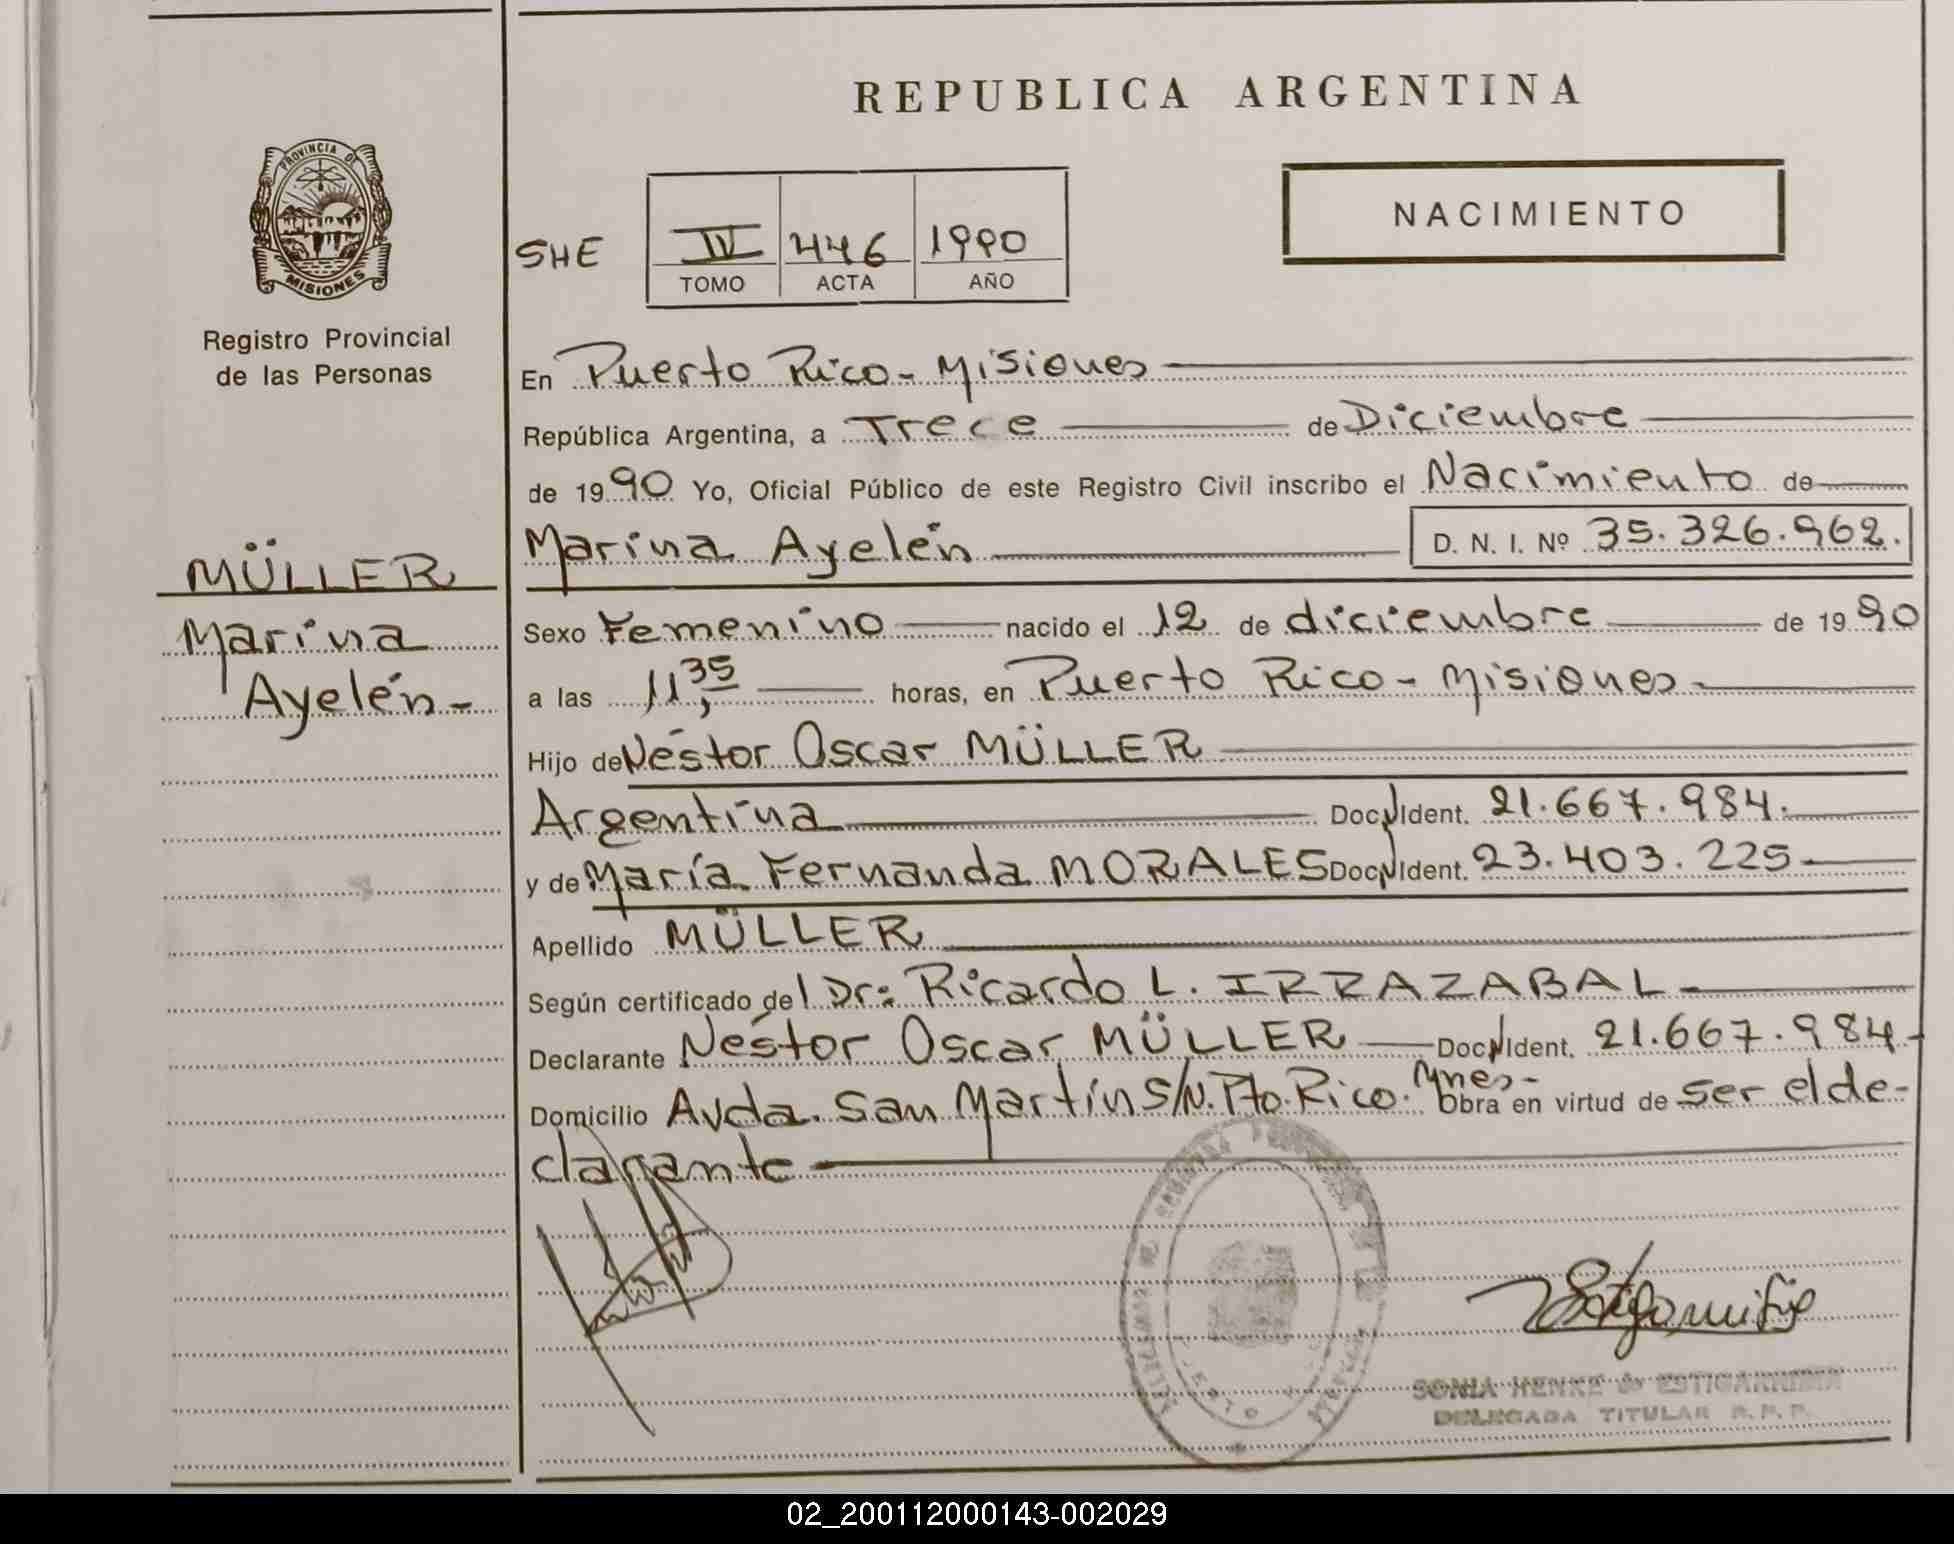 REPUBLICA ARGENTINA
PROVINCIA DE
MISIONES
Registro Provincial
de las Personas
NACIMIENTO
SHE
IV 446 1990
TOMO ACTA AÑO
MÜLLER
Marina
Ayelén-
En Puerto Rico - Misiones
República Argentina, a Trece de Diciembre
de 1990 Yo, Oficial Público de este Registro Civil inscribo el Nacimiento de
Marina Ayelén D. N. I. Nº 35.326.962.
Sexo Femenino nacido el 12 de diciembre de 1990
a las 11,35 horas, en Puerto Rico - Misiones
Hijo de Néstor Oscar MÜLLER
Argentina Doc. Ident. 21.667.984.
y de María Fernanda MORALES Doc. Ident. 23.403.225
Apellido MÜLLER
Según certificado del Dr: Ricardo L. IRRAZABAL
Declarante Néstor Oscar MÜLLER Doc. Ident. 21.667.984-
Domicilio Avda. San Martín S/N. Pto. Rico. Mnes- Obra en virtud de ser el de-
clarante
SONIA HENKE de ESTIGARRIBIA
DELEGADA TITULAR R. P. P.
02_200112000143-002029